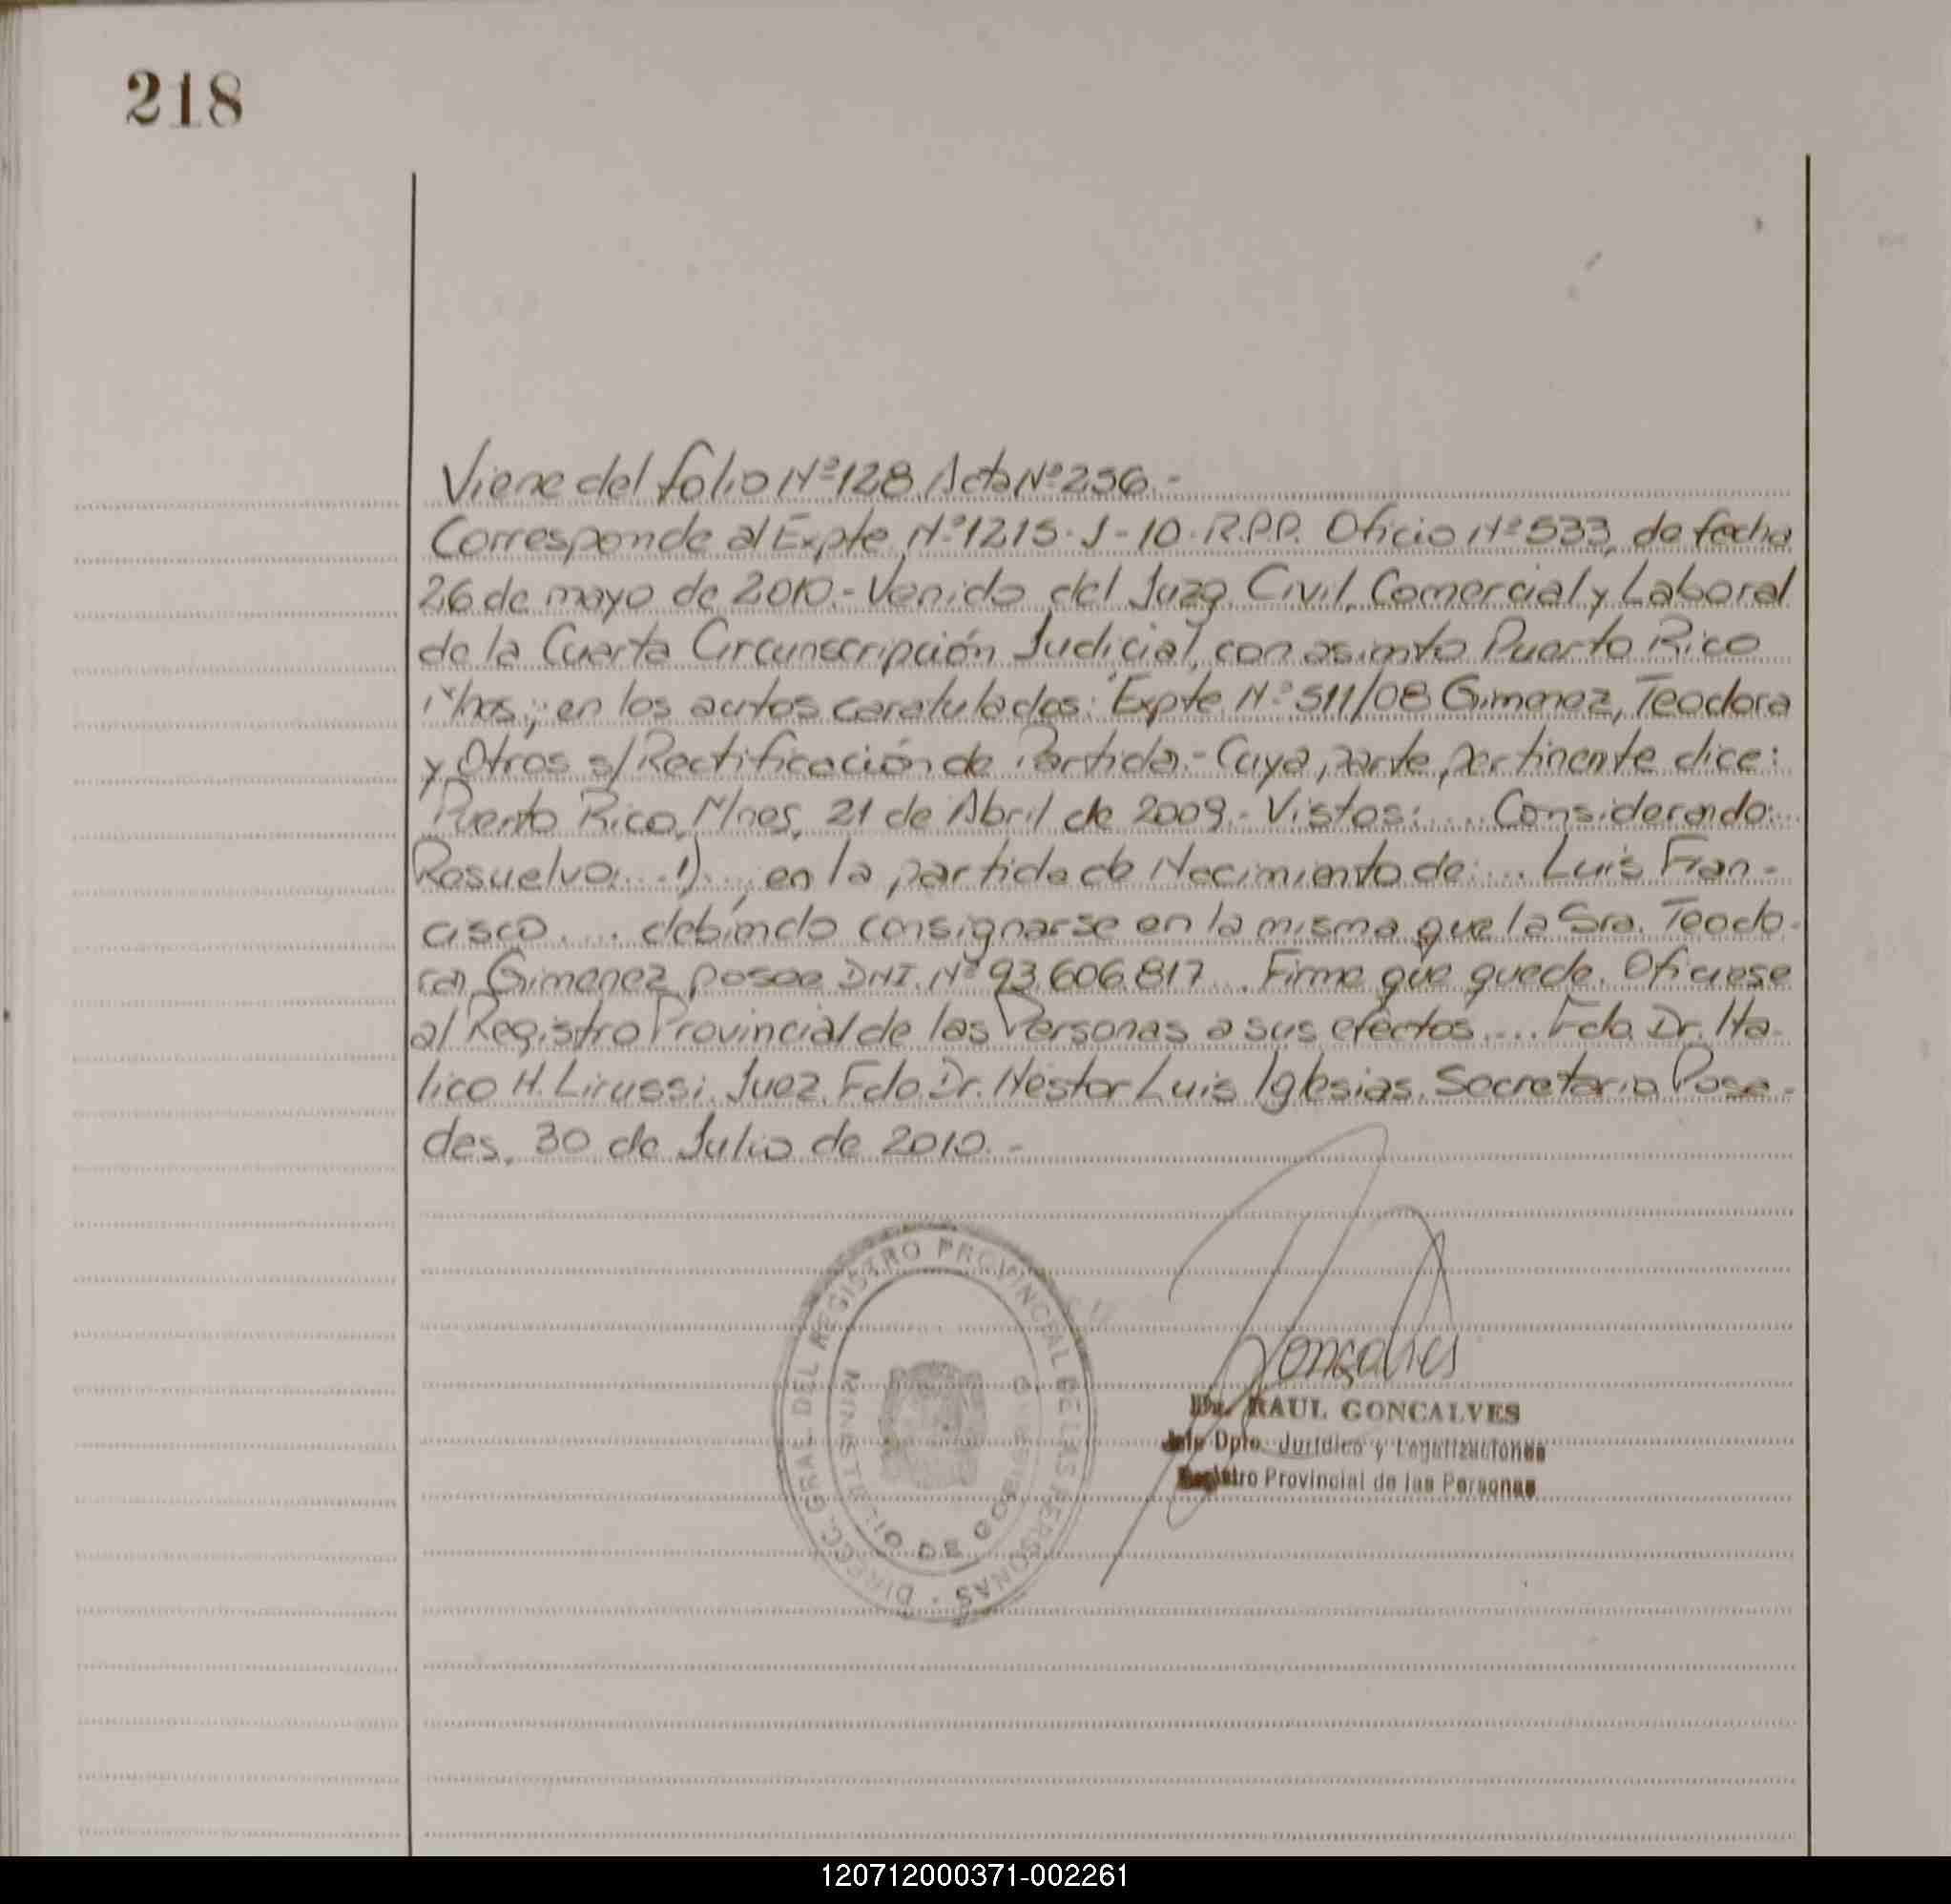 218
Viene del folio Nº 128 Acta Nº 256.-
Corresponde al Expte Nº 1215-J-10-R.P.P. Oficio Nº 533, de fecha
26 de mayo de 2010.- Venido del Juzg. Civil, Comercial y Laboral
de la Cuarta Circunscripción Judicial, con asiento Puerto Rico
Mnes; en los autos caratulados: "Expte Nº 511/08 Gimenez, Teodora
y Otros s/ Rectificación de Partida.- Cuya parte pertinente dice:
Puerto Rico, Mnes, 21 de Abril de 2009.- Vistos:.... Considerando:...
Resuelvo:... 1)..., en la partida de Nacimiento de:... Luis Fran-
cisco.... debiendo consignarse en la misma que la Sra. Teodo-
ra Gimenez posee DNI. Nº 93.606.817... Firme que quede. Oficiese
al Registro Provincial de las Personas a sus efectos.... Fdo. Dr. Ita-
lico H. Lirussi. Juez. Fdo. Dr. Nestor Luis Iglesias. Secretario. Posa-
das, 30 de Julio de 2010.-
DIRECC. GRAL. DEL REGISTRO PROVINCIAL DE LAS PERSONAS
MINISTERIO DE GOBIERNO
Goncalves
Dr. RAUL GONCALVES
Jefe Dpto. Jurídico y Legalizaciones
Registro Provincial de las Personas
120712000371-002261